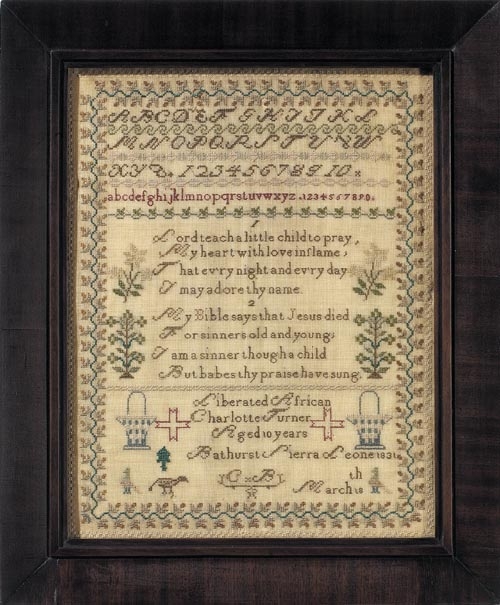 ABCDEFGHIJKL
MNOPQRSTUVW
XYZ. 12345678910
abcdefghijklmnopqrstuvwxyz.1234567890.
1
Lord teach a little child to pray,
My heart with love inflame,
That ev'ry night and ev'ry day
I may adore thy name.
2
My Bible says that Jesus died
For sinners old and young,
I am a sinner though a child
But babes thy praise have sung.
Liberated African
Charlotte Turner
Aged 10 years
Bathurst Sierra Leone 1831
C B
March 18th